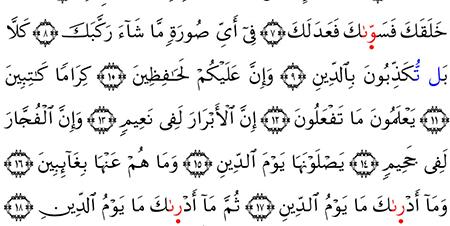 خَلَقَكَ فَسَوّ۪ىٰكَ فَعَدَلَكَ ﴿٧﴾ فِىٓ أَىِّ صُورَةٍ مَّا شَآءَ رَكَّبَكَ ﴿٨﴾ كَلَّا
بَل تُّكَذِّبُونَ بِٱلدِّينِ ﴿٩﴾ وَإِنَّ عَلَيْكُمْ لَحَٰفِظِينَ ﴿١٠﴾ كِرَامًا كَٰتِبِينَ
﴿١١﴾ يَعْلَمُونَ مَا تَفْعَلُونَ ﴿١٢﴾ إِنَّ ٱلْأَبْرَارَ لَفِى نَعِيمٍ ﴿١٣﴾ وَإِنَّ ٱلْفُجَّارَ
لَفِى جَحِيمٍ ﴿١٤﴾ يَصْلَوْنَهَا يَوْمَ ٱلدِّينِ ﴿١٥﴾ وَمَا هُمْ عَنْهَا بِغَآئِبِينَ ﴿١٦﴾
وَمَآ أَدْر۪ىٰكَ مَا يَوْمُ ٱلدِّينِ ﴿١٧﴾ ثُمَّ مَآ أَدْر۪ىٰكَ مَا يَوْمُ ٱلدِّينِ ﴿١٨﴾